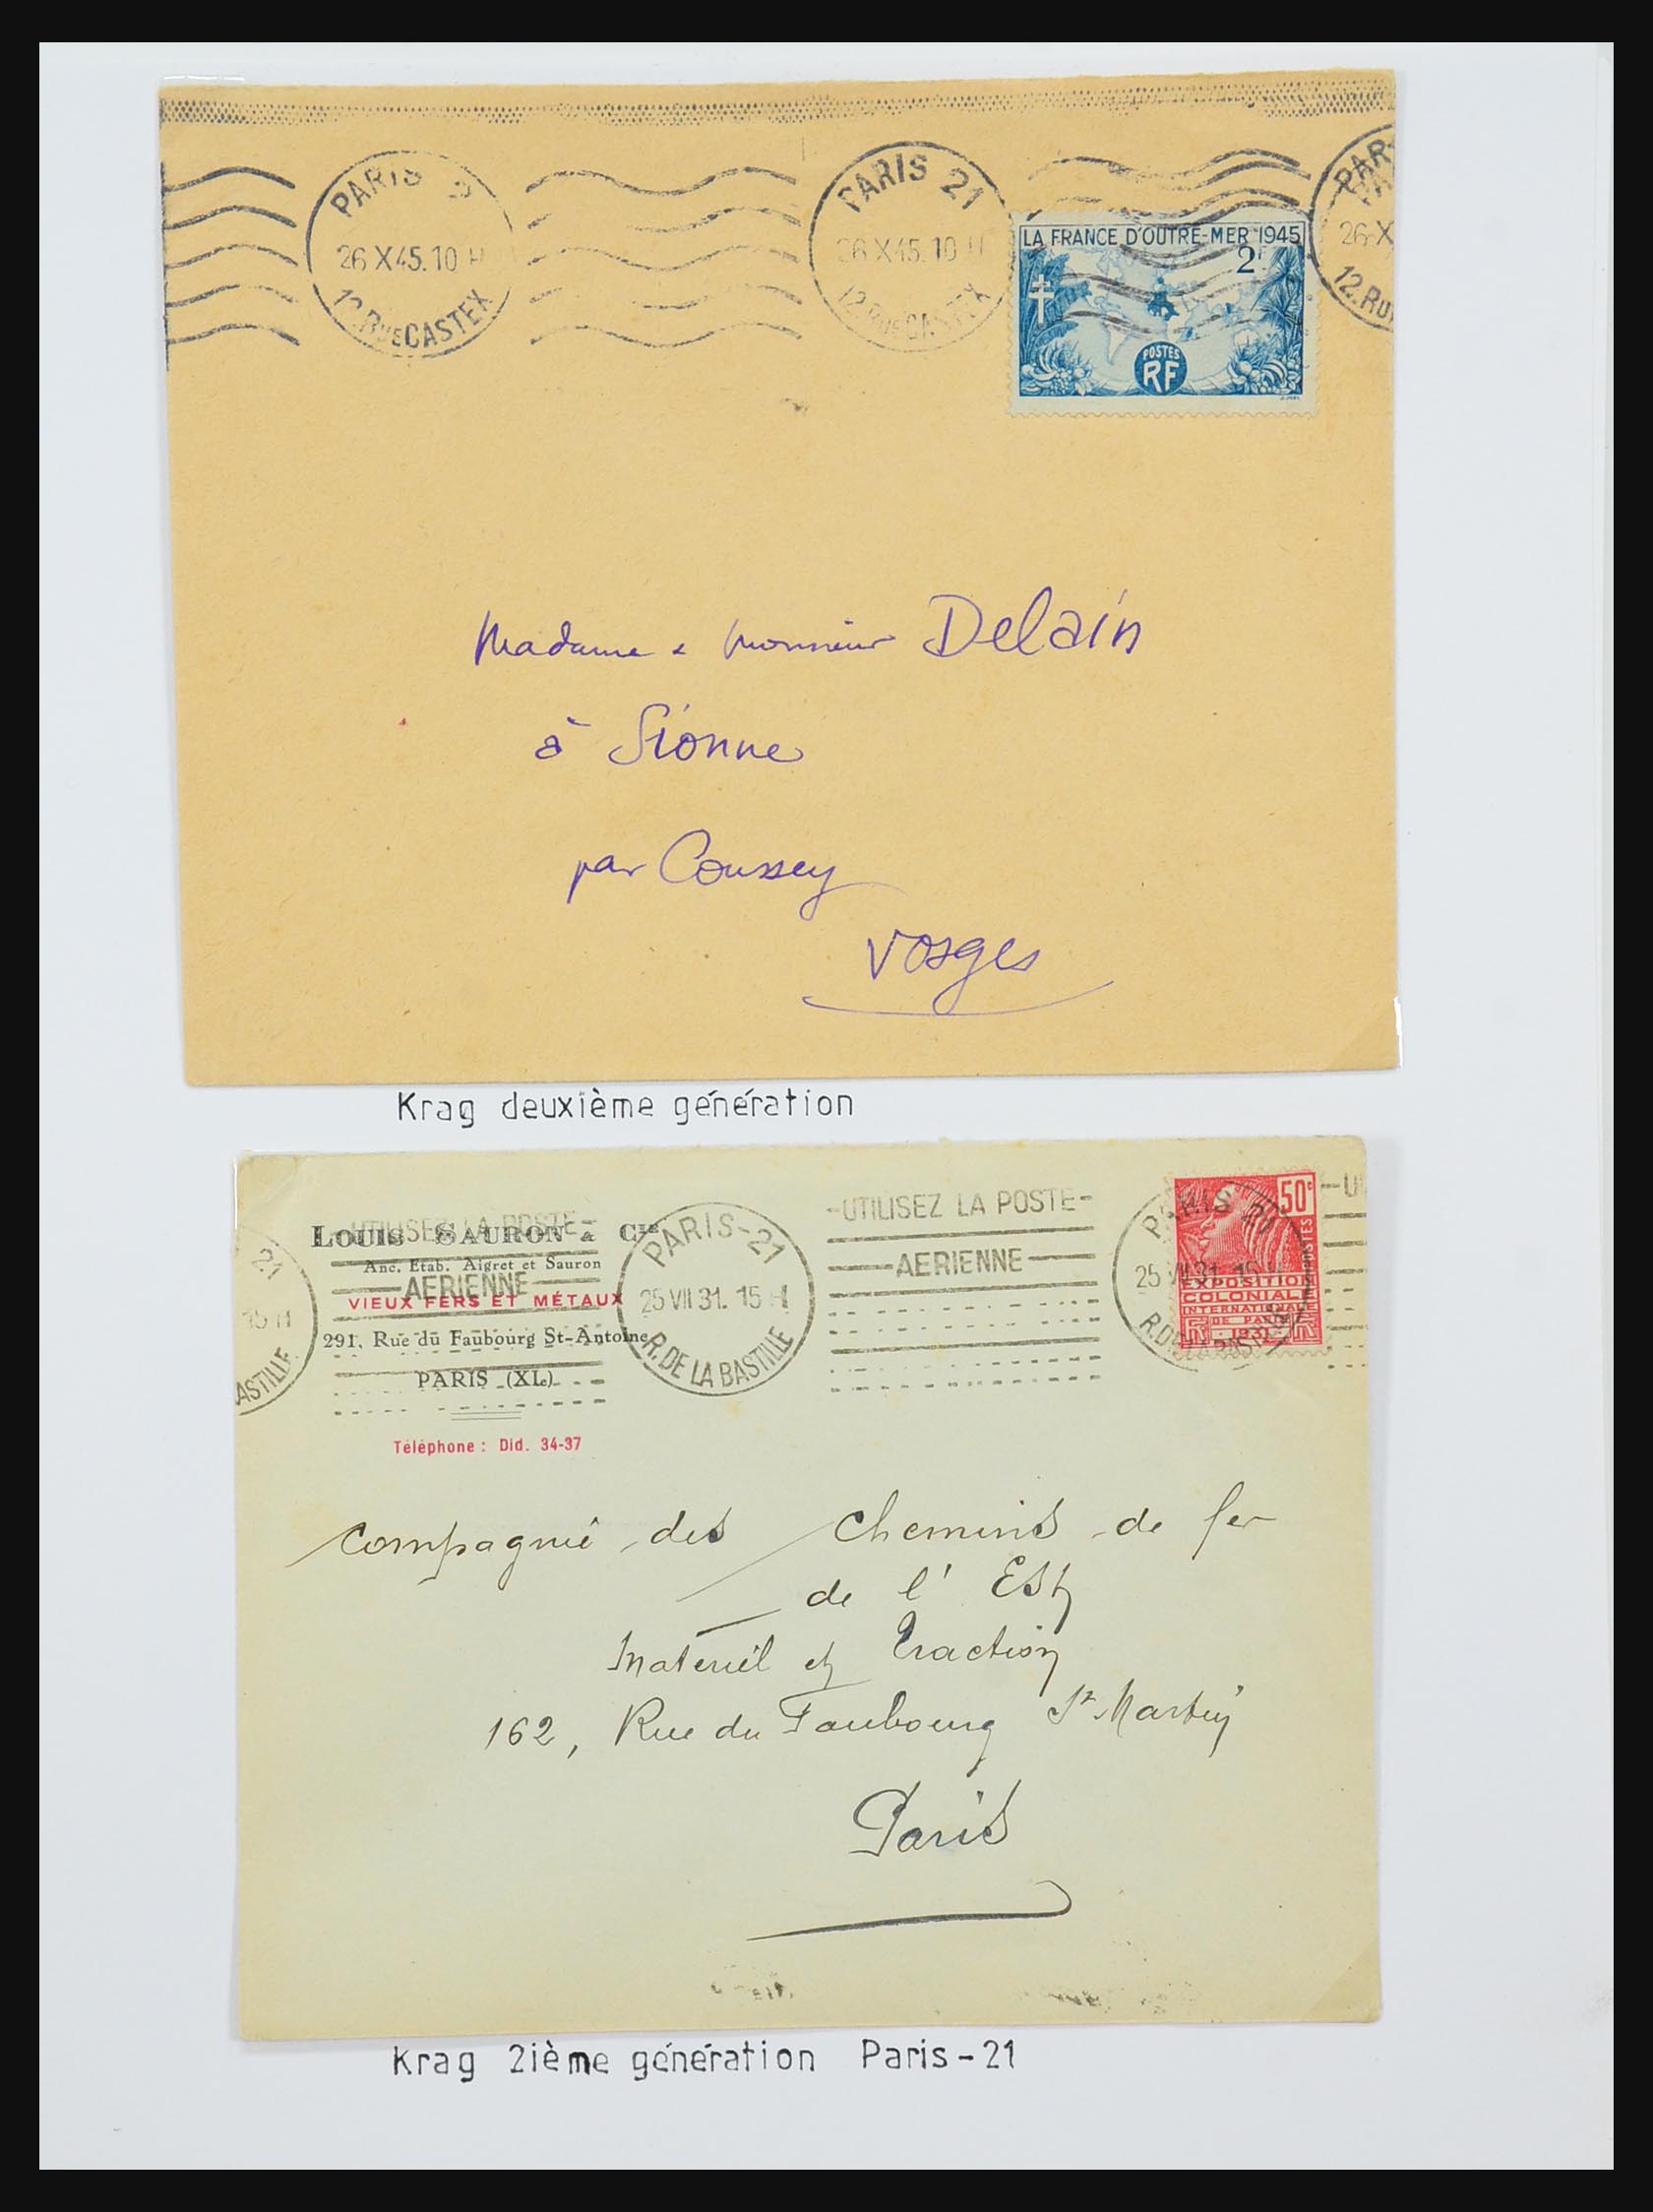 PARIS
26 X 45. 10 H
12. RUE CASTEX
PARIS 21
26 X 45. 10 H
12. RUE CASTEX
PAR
26 X
12. RU
LA FRANCE D'OUTRE-MER 1945
2F
POSTES
RF
Madame & Monsieur Delain
à Sionne
par Coussey
Vosges
Krag deuxième génération
21
15 H
ASTILLE
UTILISEZ LA POSTE-
AERIENNE
LOUIS SAURON & Cie
Anc. Etab. Aigret et Sauron
VIEUX FERS ET MÉTAUX
291, Rue du Faubourg St-Antoine
PARIS (XI.)
Téléphone : Did. 34-37
PARIS-21
25 VII 31. 15 H
R. DE LA BASTILLE
-UTILISEZ LA POSTE-
AERIENNE
PARIS 21
25 VII 31. 15
50c
POSTES
EXPOSITION
COLONIALE
INTERNATIONALE
DE PARIS
1931
-U
Compagnie des Chemins de fer
de l'Est
Matériel et Traction
162, Rue du Faubourg St Martin
Paris
Krag 2ième génération Paris-21